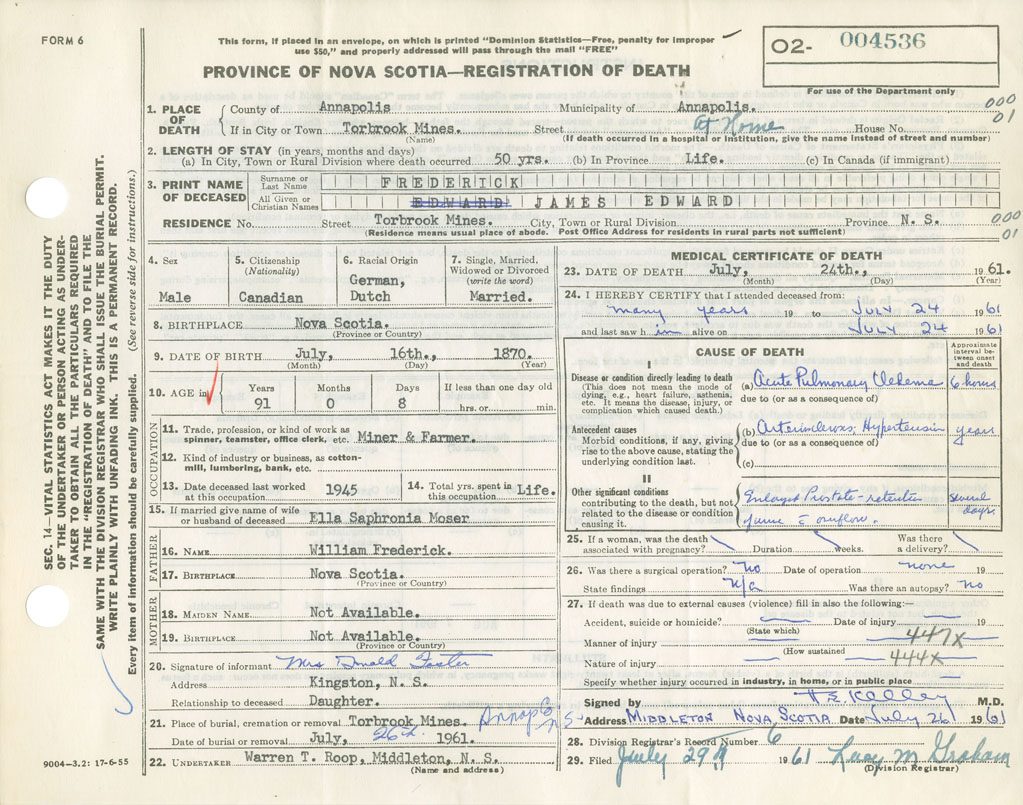 FORM 6
This form, if placed in an envelope, on which is printed "Dominion Statistics—Free, penalty for improper
use $50," and properly addressed will pass through the mail "FREE"
O2- 004536
For use of the Department only
PROVINCE OF NOVA SCOTIA—REGISTRATION OF DEATH
SEC. 14—VITAL STATISTICS ACT MAKES IT THE DUTY
OF THE UNDERTAKER OR PERSON ACTING AS UNDER-
TAKER TO OBTAIN ALL THE PARTICULARS REQUIRED
IN THE "REGISTRATION OF DEATH" AND TO FILE THE
SAME WITH THE DIVISION REGISTRAR WHO SHALL ISSUE THE BURIAL PERMIT.
WRITE PLAINLY WITH UNFADING INK. THIS IS A PERMANENT RECORD.
Every item of information should be carefully supplied. (See reverse side for instructions.)
1. PLACE OF DEATH County of Annapolis Municipality of Annapolis.
000
01
If in City or Town Torbrook Mines. Street At Home House No.
(Name) (If death occurred in a hospital or institution, give the name instead of street and number)
2. LENGTH OF STAY (in years, months and days)
(a) In City, Town or Rural Division where death occurred 50 yrs. (b) In Province Life. (c) In Canada (if immigrant)
3. PRINT NAME OF DECEASED
Surname or Last Name FREDERICK
All Given or Christian Names EDWARD JAMES EDWARD
RESIDENCE No. Street Torbrook Mines. City, Town or Rural Division Province N. S.
000
01
(Residence means usual place of abode. Post Office Address for residents in rural parts not sufficient)
4. Sex
Male
5. Citizenship
(Nationality)
Canadian
6. Racial Origin
German,
Dutch
7. Single, Married,
Widowed or Divorced
(write the word)
Married.
8. BIRTHPLACE Nova Scotia.
(Province or Country)
9. DATE OF BIRTH July, 16th., 1870.
(Month) (Day) (Year)
10. AGE in
Years Months Days If less than one day old
91 0 8 hrs. or min.
OCCUPATION
11. Trade, profession, or kind of work as
spinner, teamster, office clerk, etc. Miner & Farmer.
12. Kind of industry or business, as cotton-
mill, lumbering, bank, etc.
13. Date deceased last worked
at this occupation 1945
14. Total yrs. spent in
this occupation Life.
15. If married give name of wife
or husband of deceased Ella Saphronia Moser
FATHER
16. NAME William Frederick.
17. BIRTHPLACE Nova Scotia.
(Province or Country)
MOTHER
18. MAIDEN NAME Not Available.
19. BIRTHPLACE Not Available.
(Province or Country)
20. Signature of informant Mrs Donald Foster
Address Kingston, N. S.
Relationship to deceased Daughter.
21. Place of burial, cremation or removal Torbrook Mines. Annap Co N S
Date of burial or removal July, 26th. 1961.
22. UNDERTAKER Warren T. Roop, Middleton, N. S.
(Name and address)
9004—3.2: 17-6-55
MEDICAL CERTIFICATE OF DEATH
23. DATE OF DEATH July, 24th., 1961.
(Month) (Day) (Year)
24. I HEREBY CERTIFY that I attended deceased from:
many years 19 to JULY 24 1961
and last saw him alive on JULY 24 1961
CAUSE OF DEATH
Approximate
interval be-
tween onset
and death
I
Disease or condition directly leading to death
(This does not mean the mode of
dying, e.g., heart failure, asthenia,
etc. It means the disease, injury, or
complication which caused death.)
(a) Acute Pulmonary Oedema 6 hours
due to (or as a consequence of)
Antecedent causes
Morbid conditions, if any, giving
rise to the above cause, stating the
underlying condition last.
(b) Arteriosclerosis, Hypertension years
due to (or as a consequence of)
(c)
II
Other significant conditions
contributing to the death, but not
related to the disease or condition
causing it.
Enlarged Prostate - retention
several
days.
urine c̄ overflow.
25. If a woman, was the death
associated with pregnancy? Duration weeks. Was there
a delivery?
26. Was there a surgical operation? No Date of operation none 19
State findings N/A Was there an autopsy? No
27. If death was due to external causes (violence) fill in also the following:—
Accident, suicide or homicide? Date of injury 19
(State which)
Manner of injury 447X
(How sustained)
Nature of injury 444X
Specify whether injury occurred in industry, in home, or in public place
Signed by H E. Kelley M.D.
Address MIDDLETON NOVA SCOTIA Date July 26 1961
28. Division Registrar's Record Number 6
29. Filed July 29 1961 M Graham
(Division Registrar)